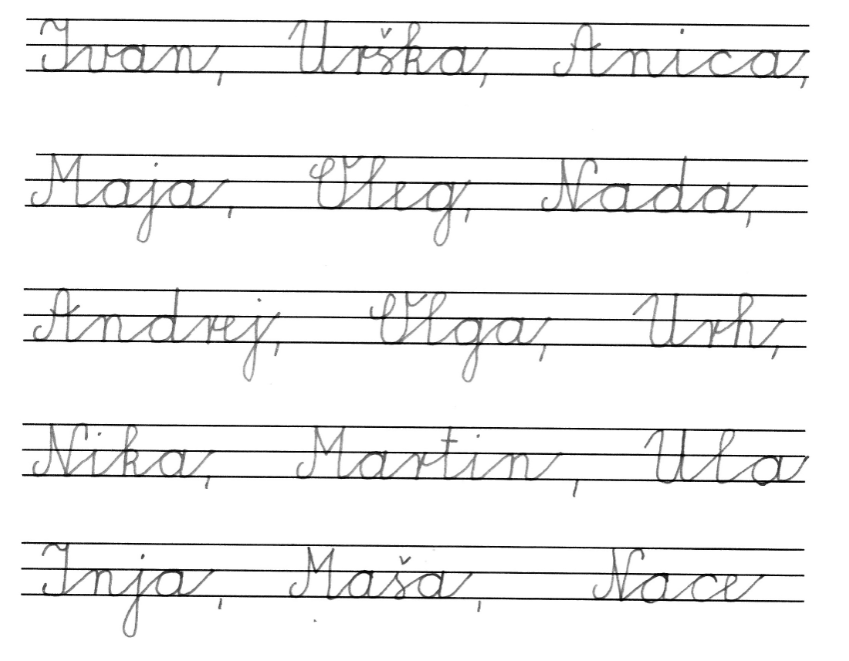 Ivan, Urška, Anica,
Maja, Oleg, Nada,
Andrej, Olga, Urh,
Nika, Martin, Ula
Inja, Maša, Nace